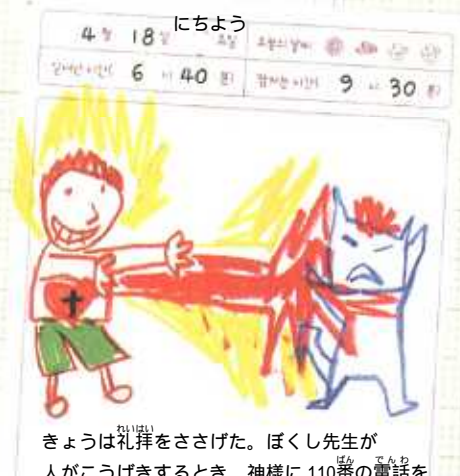 にちよう
4월 18일 요일 오늘의 날씨
일어난 시간 6 시 40 분 잠자는 시간 9 시 30 분
きょうは礼拝をささげた。ぼくし先生が
人がこうげきするとき、神様に110番の電話を